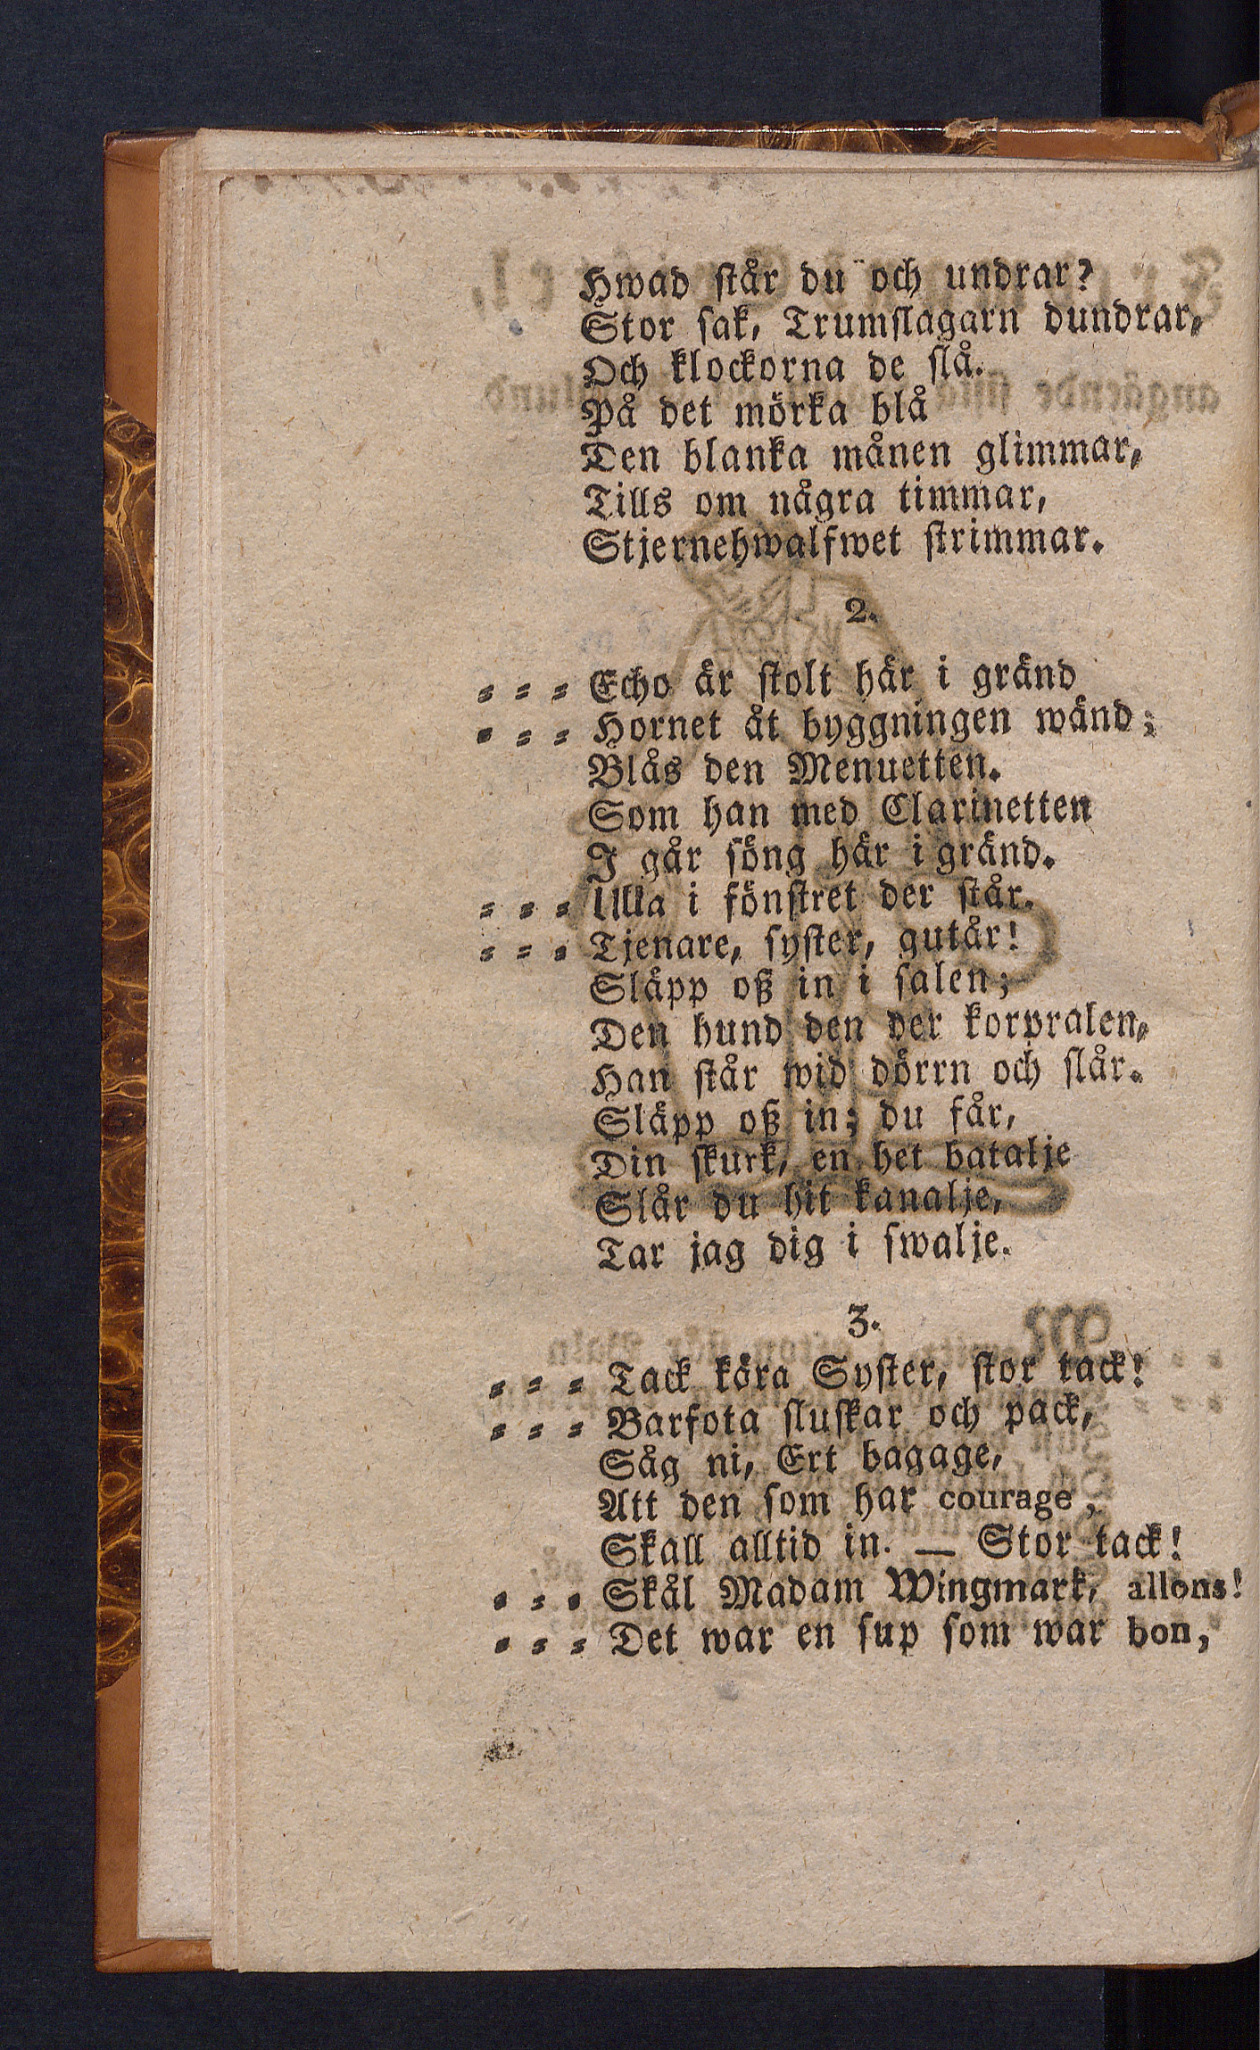 Hwad står du och undrar?
Stor sak, Trumslagarn dundrar,
Och klockorna de slå.
På det mörka blå
Den blanka månen glimmar,
Tills om några timmar,
Stjernehwalfwet strimmar.
2.
= = = Echo är stolt här i gränd
= = = Hornet åt byggningen wänd;
Blås den Menuetten.
Som han med Clarinetten
I går söng här i gränd.
= = = Ulla i fönstret der står.
= = = Tjenare, syster, gutår!
Släpp oß in i salen;
Den hund den der korpralen,
Han står wid dörrn och slår.
Släpp oß in; du får,
Din skurk, en het batalje
Slår du hit kanalje,
Tar jag dig i swalje.
3.
= = = Tack kära Syster, stor tack!
= = = Barfota sluskar och pack,
Såg ni, Ert bagage,
Att den som har courage,
Skall alltid in. — Stor tack!
= = = Skål Madam Wingmark, allons!
= = = Det war en sup som war bon,